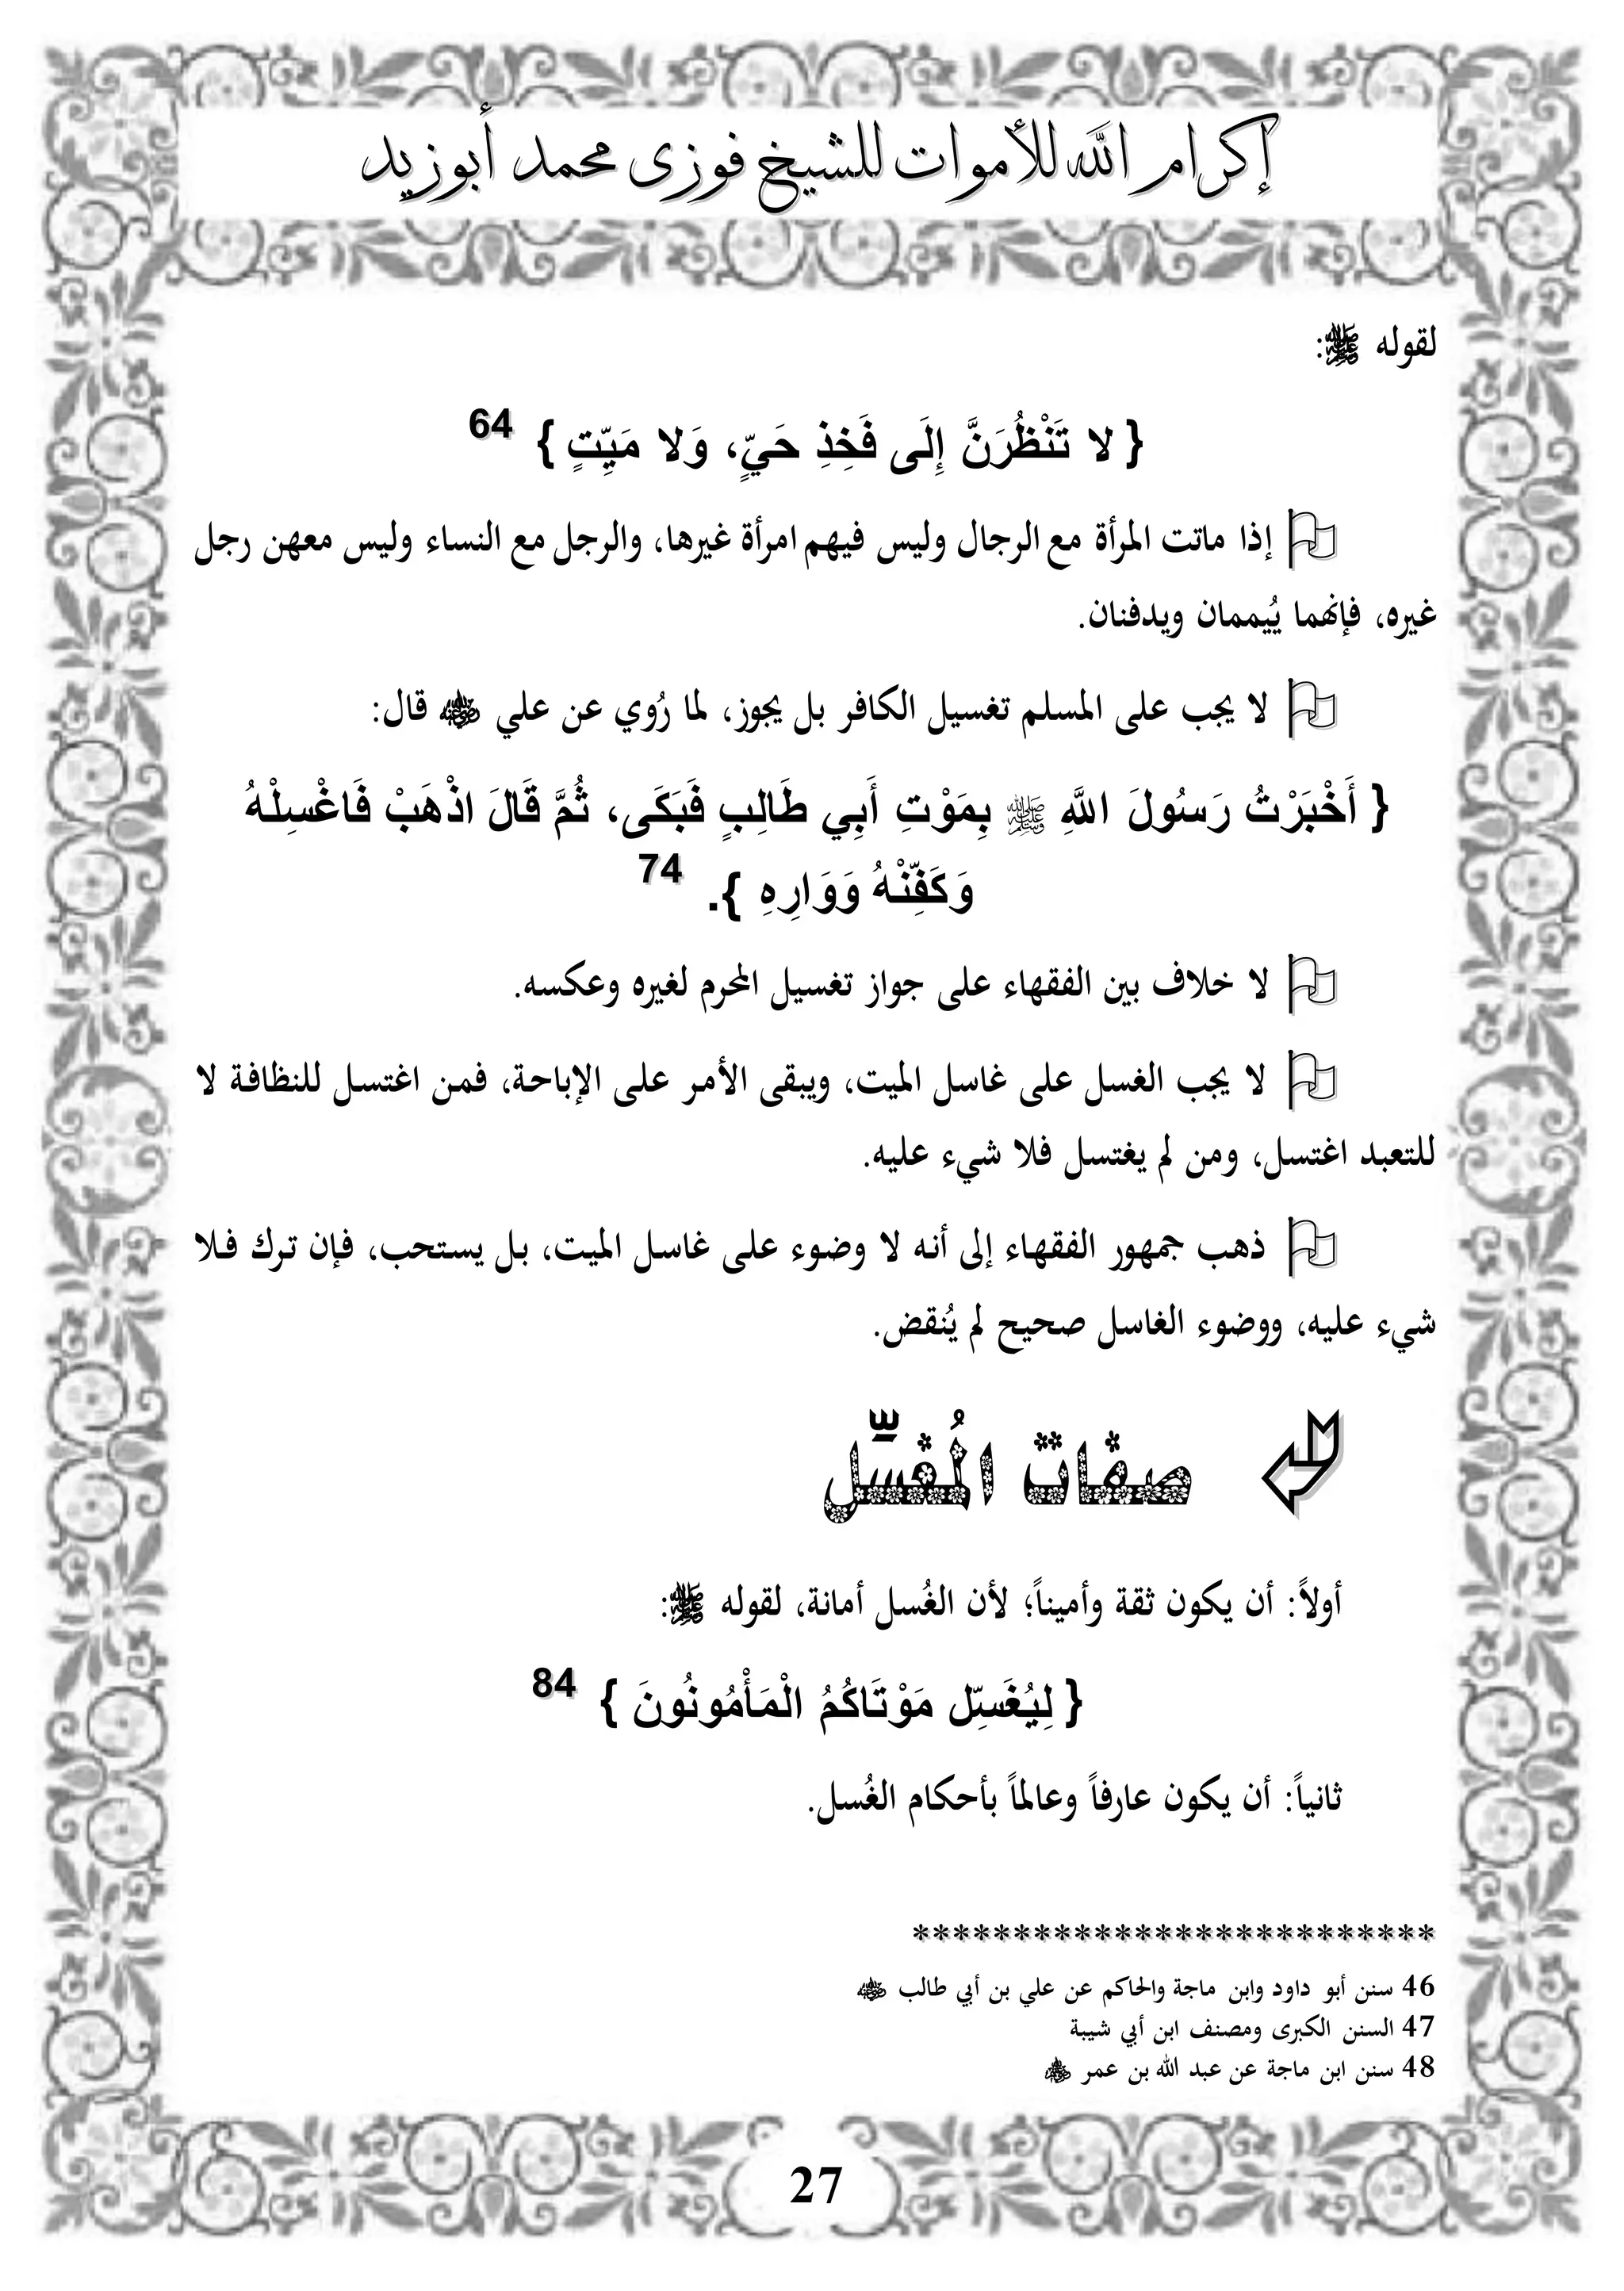 إكرام الله للأموات للشيخ فوزى محمد أبوزيد
لقوله ﷺ:
{ لا تَنْظُرَنَّ إِلَى فَخِذِ حَيٍّ، وَلا مَيِّتٍ } 64
إذا ماتت المرأة مع الرجال وليس فيهم امرأة غيرها، والرجل مع النساء وليس معهن رجل
غيره، فإنهما يُيممان ويدفنان.
لا يجب على المسلم تغسيل الكافر بل يجوز، لما رُوي عن علي ﵁ قال:
{ أَخْبَرْتُ رَسُولَ اللَّهِ ﷺ بِمَوْتِ أَبِي طَالِبٍ فَبَكَى، ثُمَّ قَالَ اذْهَبْ فَاغْسِلْهُ
وَكَفِّنْهُ وَوَارِهِ }. 74
لا خلاف بين الفقهاء على جواز تغسيل المحرم لغيره وعكسه.
لا يجب الغسل على غاسل الميت، ويبقى الأمر على الإباحة، فمن اغتسل للنظافة لا
للتعبد اغتسل، ومن لم يغتسل فلا شيء عليه.
ذهب جمهور الفقهاء إلى أنه لا وضوء على غاسل الميت، بل يستحب، فإن ترك فلا
شيء عليه، ووضوء الغاسل صحيح لم يُنقض.
صفات المُغسِّل
أولاً: أن يكون ثقة وأميناً؛ لأن الغُسل أمانة، لقوله ﷺ:
{ لِيُغَسِّل مَوْتَاكُمُ الْمَأْمُونُونَ } 84
ثانياً: أن يكون عارفاً وعالماً بأحكام الغُسل.
**************************
46 سنن أبو داود وابن ماجة والحاكم عن علي بن أبي طالب ﵁
47 السنن الكبرى ومصنف ابن أبي شيبة
48 سنن ابن ماجة عن عبد الله بن عمر ﵁
27